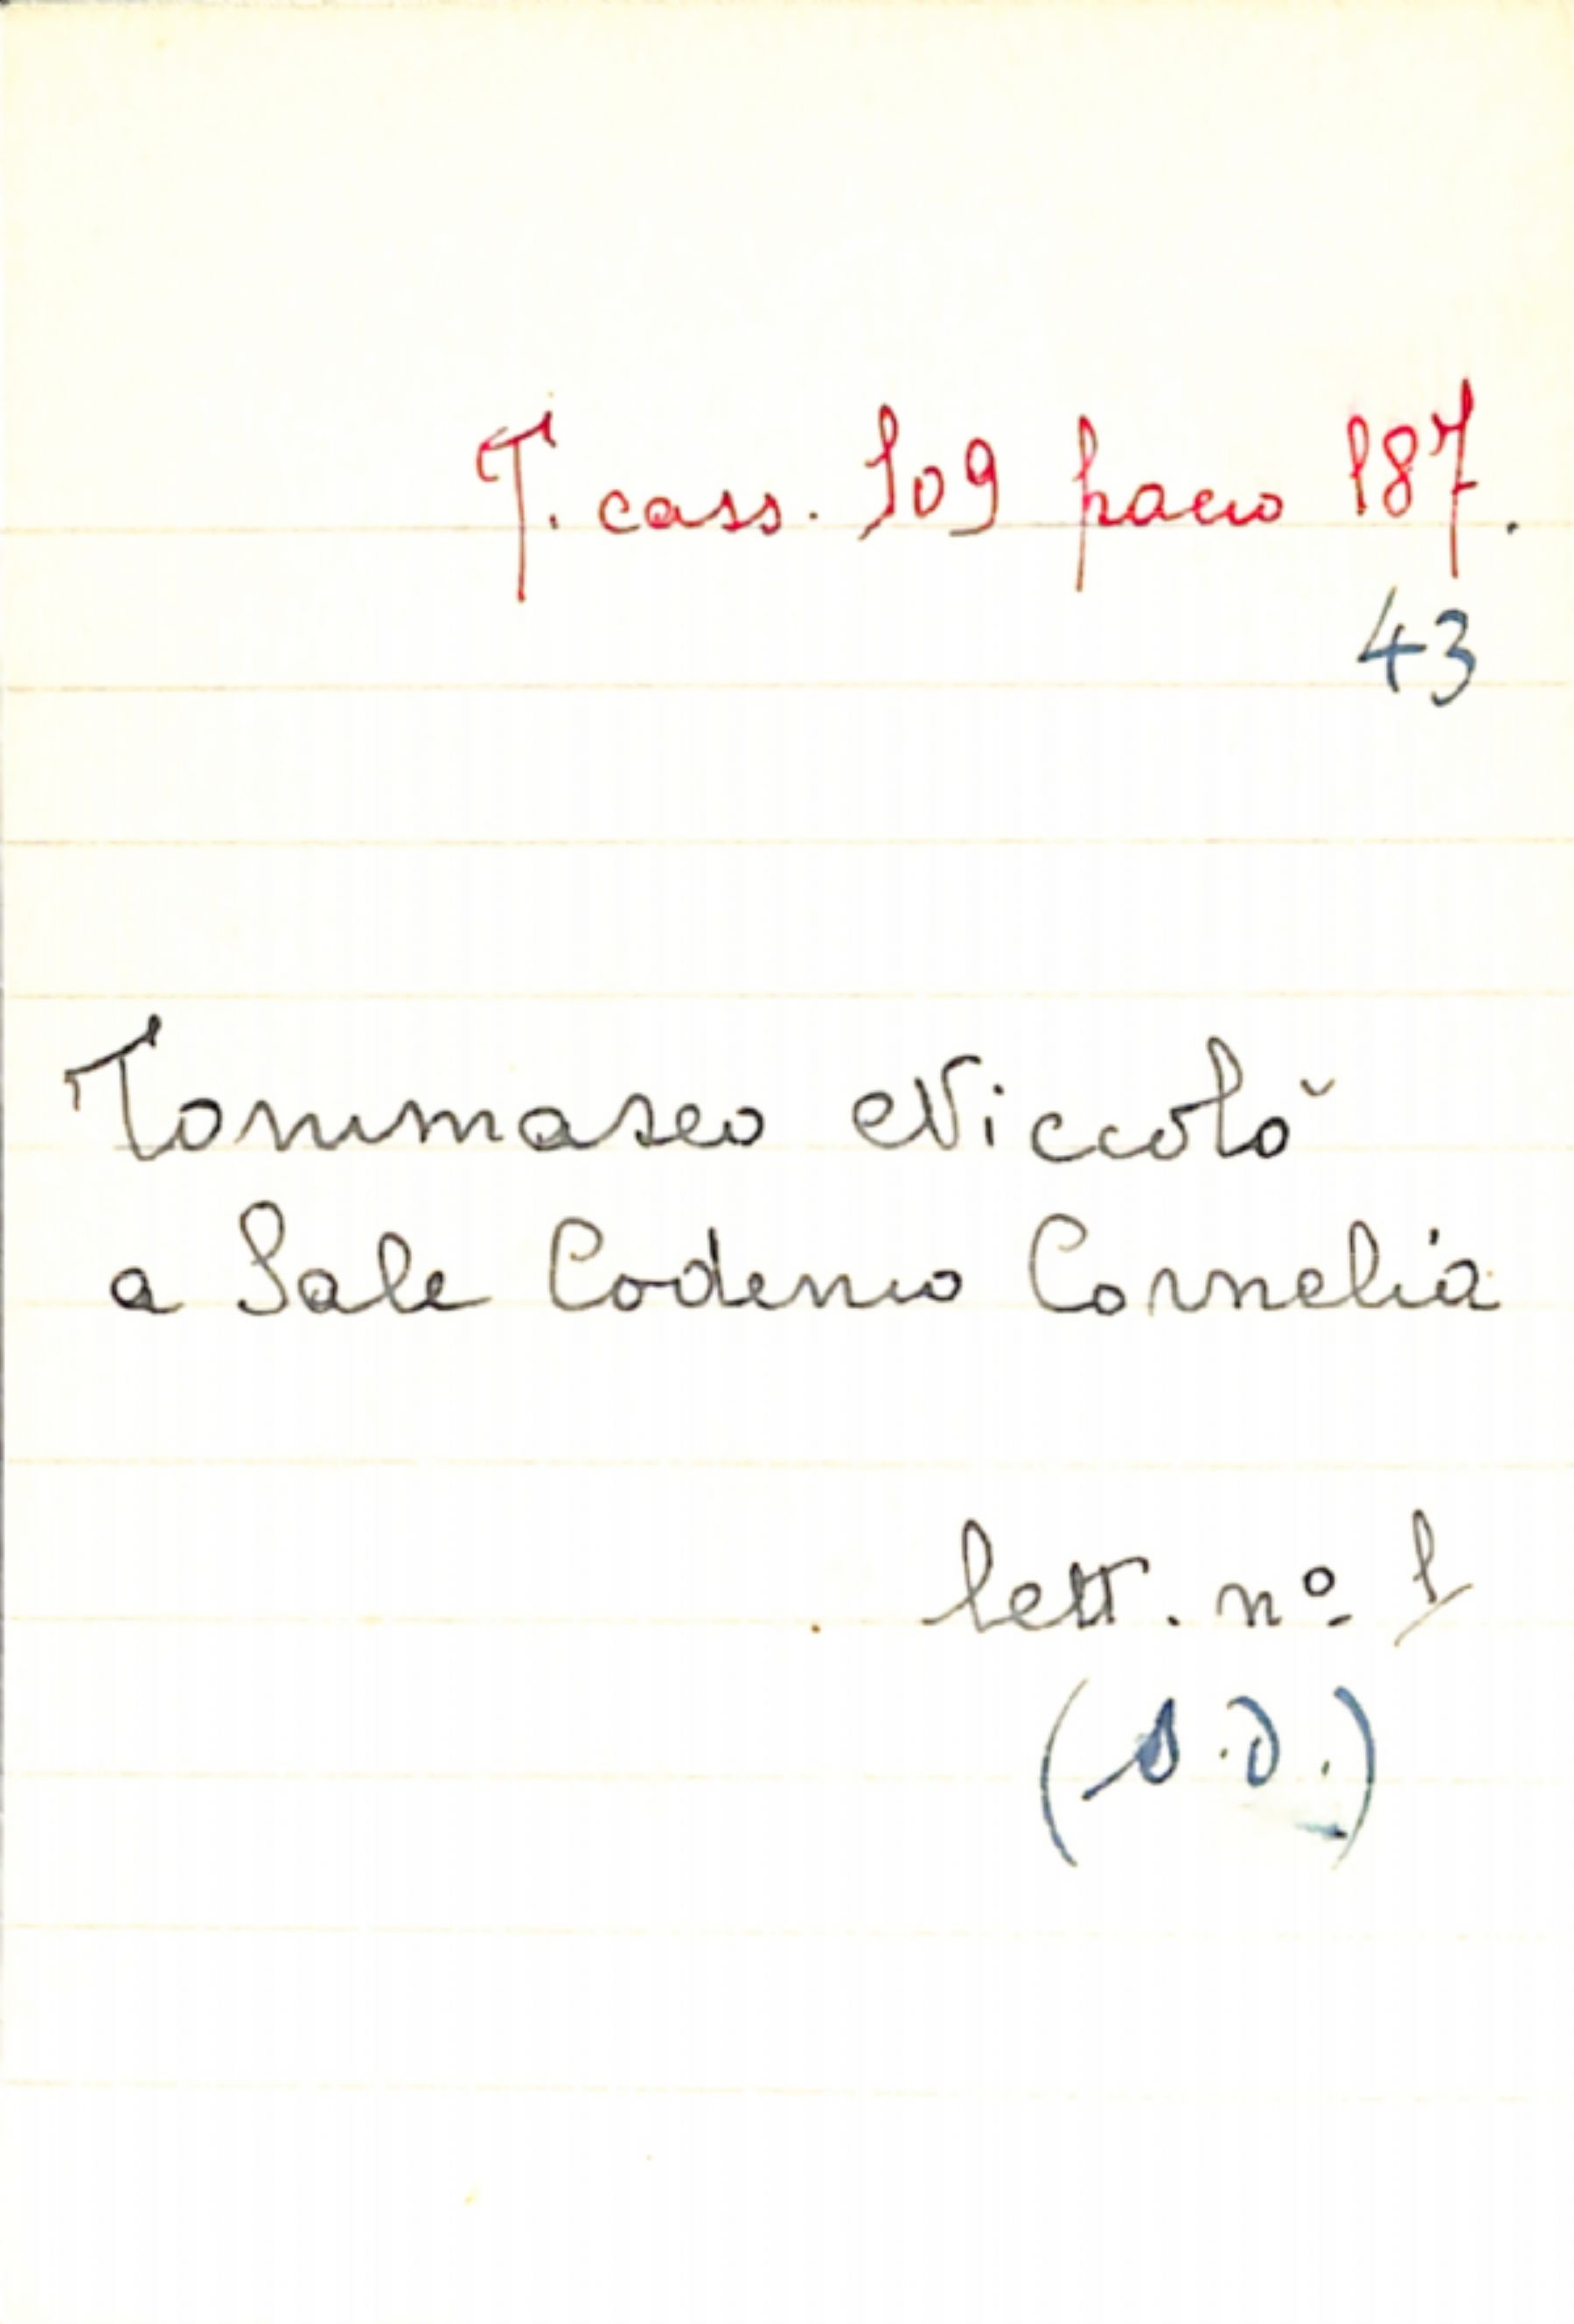 T. cass. 109 pacco 187.
43
Tommaseo Niccolò
a Sale Codemo Cornelia
lett. nº 1
(s.d.)